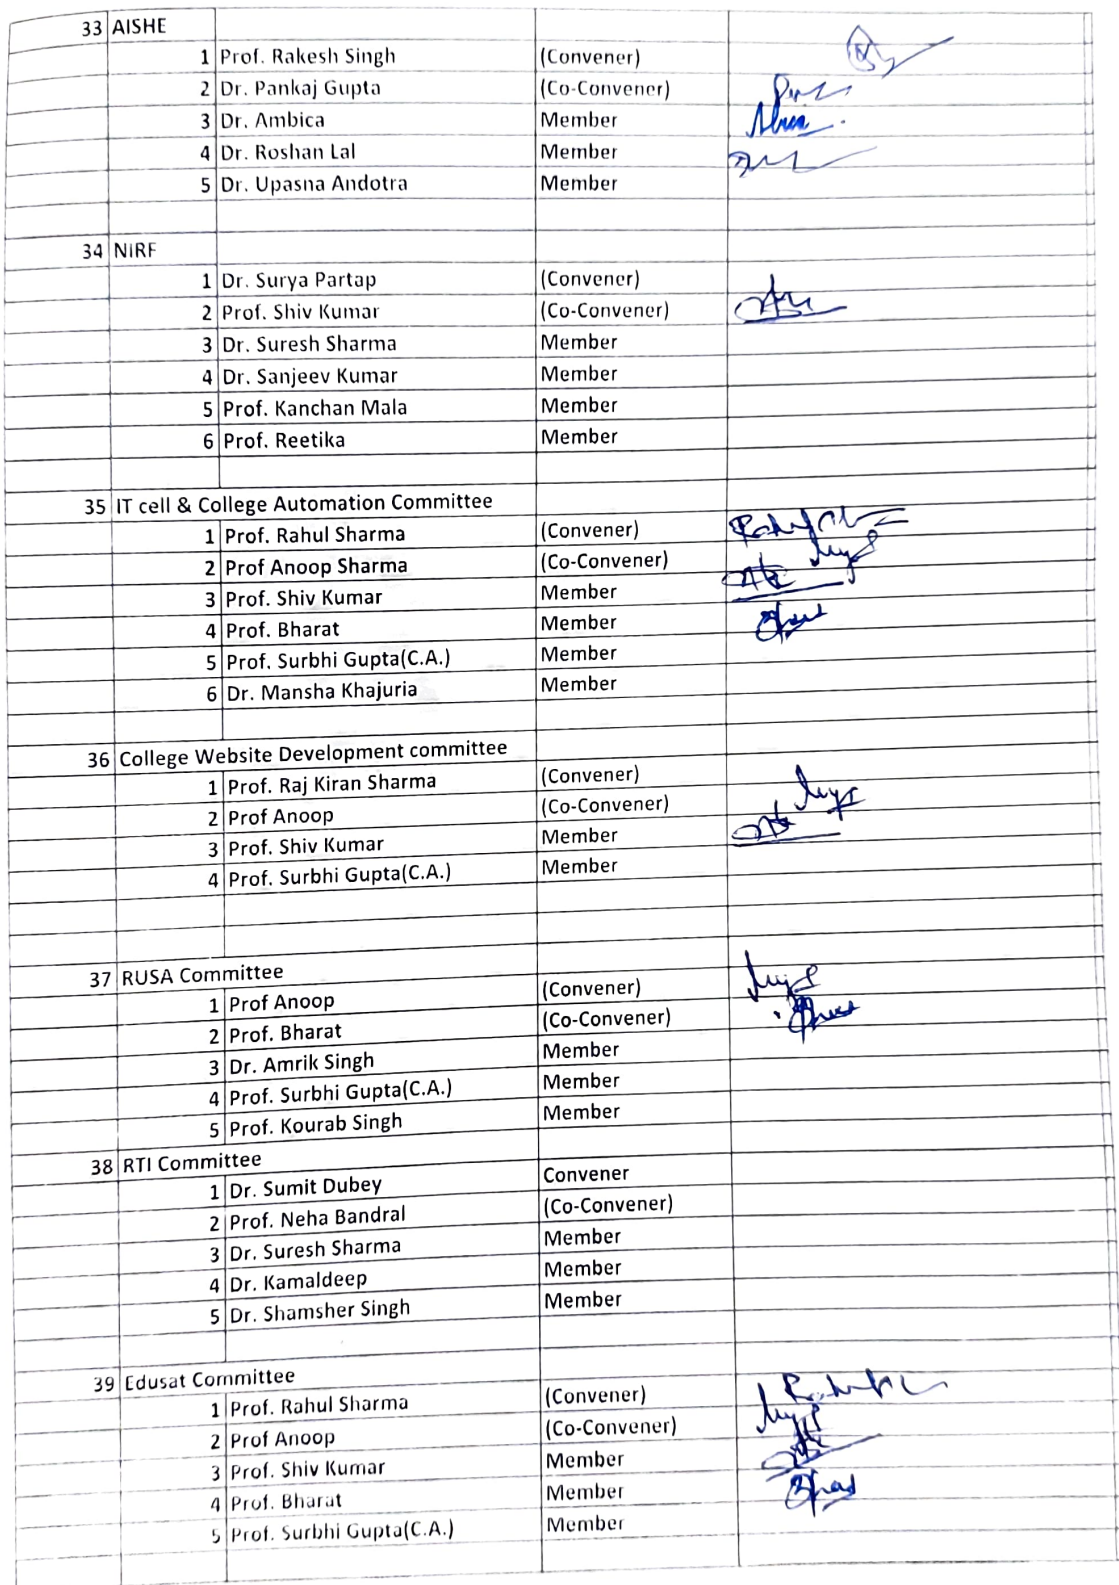 33 AISHE
1 Prof. Rakesh Singh (Convener)
2 Dr. Pankaj Gupta (Co-Convener)
3 Dr. Ambica Member
4 Dr. Roshan Lal Member
5 Dr. Upasna Andotra Member
34 NIRF
1 Dr. Surya Partap (Convener)
2 Prof. Shiv Kumar (Co-Convener)
3 Dr. Suresh Sharma Member
4 Dr. Sanjeev Kumar Member
5 Prof. Kanchan Mala Member
6 Prof. Reetika Member
35 IT cell & College Automation Committee
1 Prof. Rahul Sharma (Convener)
2 Prof Anoop Sharma (Co-Convener)
3 Prof. Shiv Kumar Member
4 Prof. Bharat Member
5 Prof. Surbhi Gupta(C.A.) Member
6 Dr. Mansha Khajuria Member
36 College Website Development committee
1 Prof. Raj Kiran Sharma (Convener)
2 Prof Anoop (Co-Convener)
3 Prof. Shiv Kumar Member
4 Prof. Surbhi Gupta(C.A.) Member
37 RUSA Committee
1 Prof Anoop (Convener)
2 Prof. Bharat (Co-Convener)
3 Dr. Amrik Singh Member
4 Prof. Surbhi Gupta(C.A.) Member
5 Prof. Kourab Singh Member
38 RTI Committee
1 Dr. Sumit Dubey Convener
2 Prof. Neha Bandral (Co-Convener)
3 Dr. Suresh Sharma Member
4 Dr. Kamaldeep Member
5 Dr. Shamsher Singh Member
39 Edusat Committee
1 Prof. Rahul Sharma (Convener)
2 Prof Anoop (Co-Convener)
3 Prof. Shiv Kumar Member
4 Prof. Bharat Member
5 Prof. Surbhi Gupta(C.A.) Member